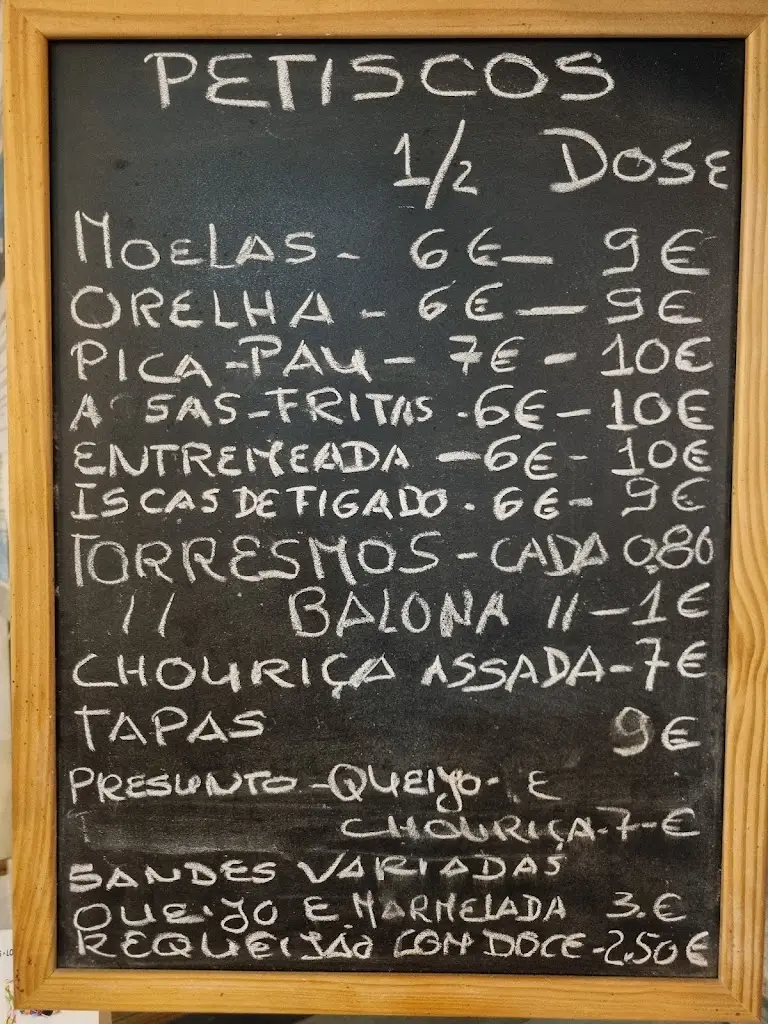 PETISCOS
1/2 DOSE
MOELAS - 6€ — 9€
ORELHA - 6€ — 9€
PICA-PAU - 7€ - 10€
A SAS-FRITAS - 6€ - 10€
ENTREMEADA - 6€ - 10€
ISCAS DE FIGADO - 6€ - 9€
TORRESMOS - CADA 0,80
// BALONA // - 1€
CHOURIÇA ASSADA - 7€
TAPAS 9€
PRESUNTO - QUEIJO - E
CHOURIÇA - 7-€
SANDES VARIADAS
QUEIJO E MARMELADA 3.€
REQUEIJÃO COM DOCE - 2,50€